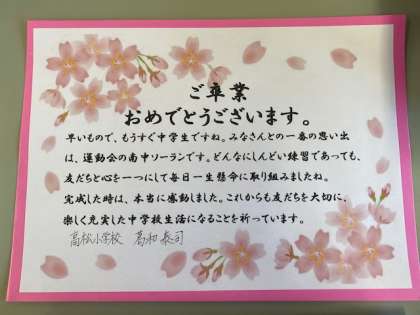 ご卒業
おめでとうございます。
早いもので、もうすぐ中学生ですね。みなさんとの一番の思い出
は、運動会の南中ソーランです。どんなにしんどい練習であっても、
友だちと心を一つにして毎日一生懸命に取り組みましたね。
完成した時は、本当に感動しました。これからも友だちを大切に、
楽しく充実した中学校生活になることを祈っています。
高松小学校 葛和泰司